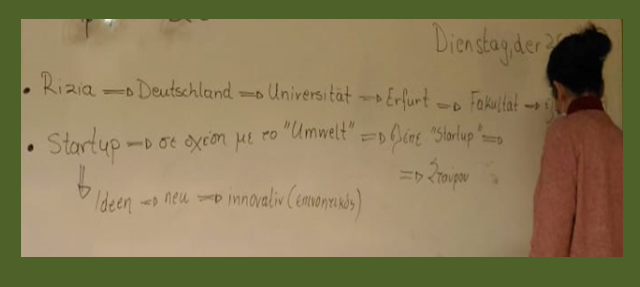 Dienstag, der
• Rizia ⇒ Deutschland ⇒ Universität ⇒ Erfurt ⇒ Fakultät →
• Startup → σε σχέση με το "Umwelt" ⇒ "Startup" ⇒
⇒ Σταύρου
Ideen ⇒ neu ⇒ innovativ (επινοητικός)